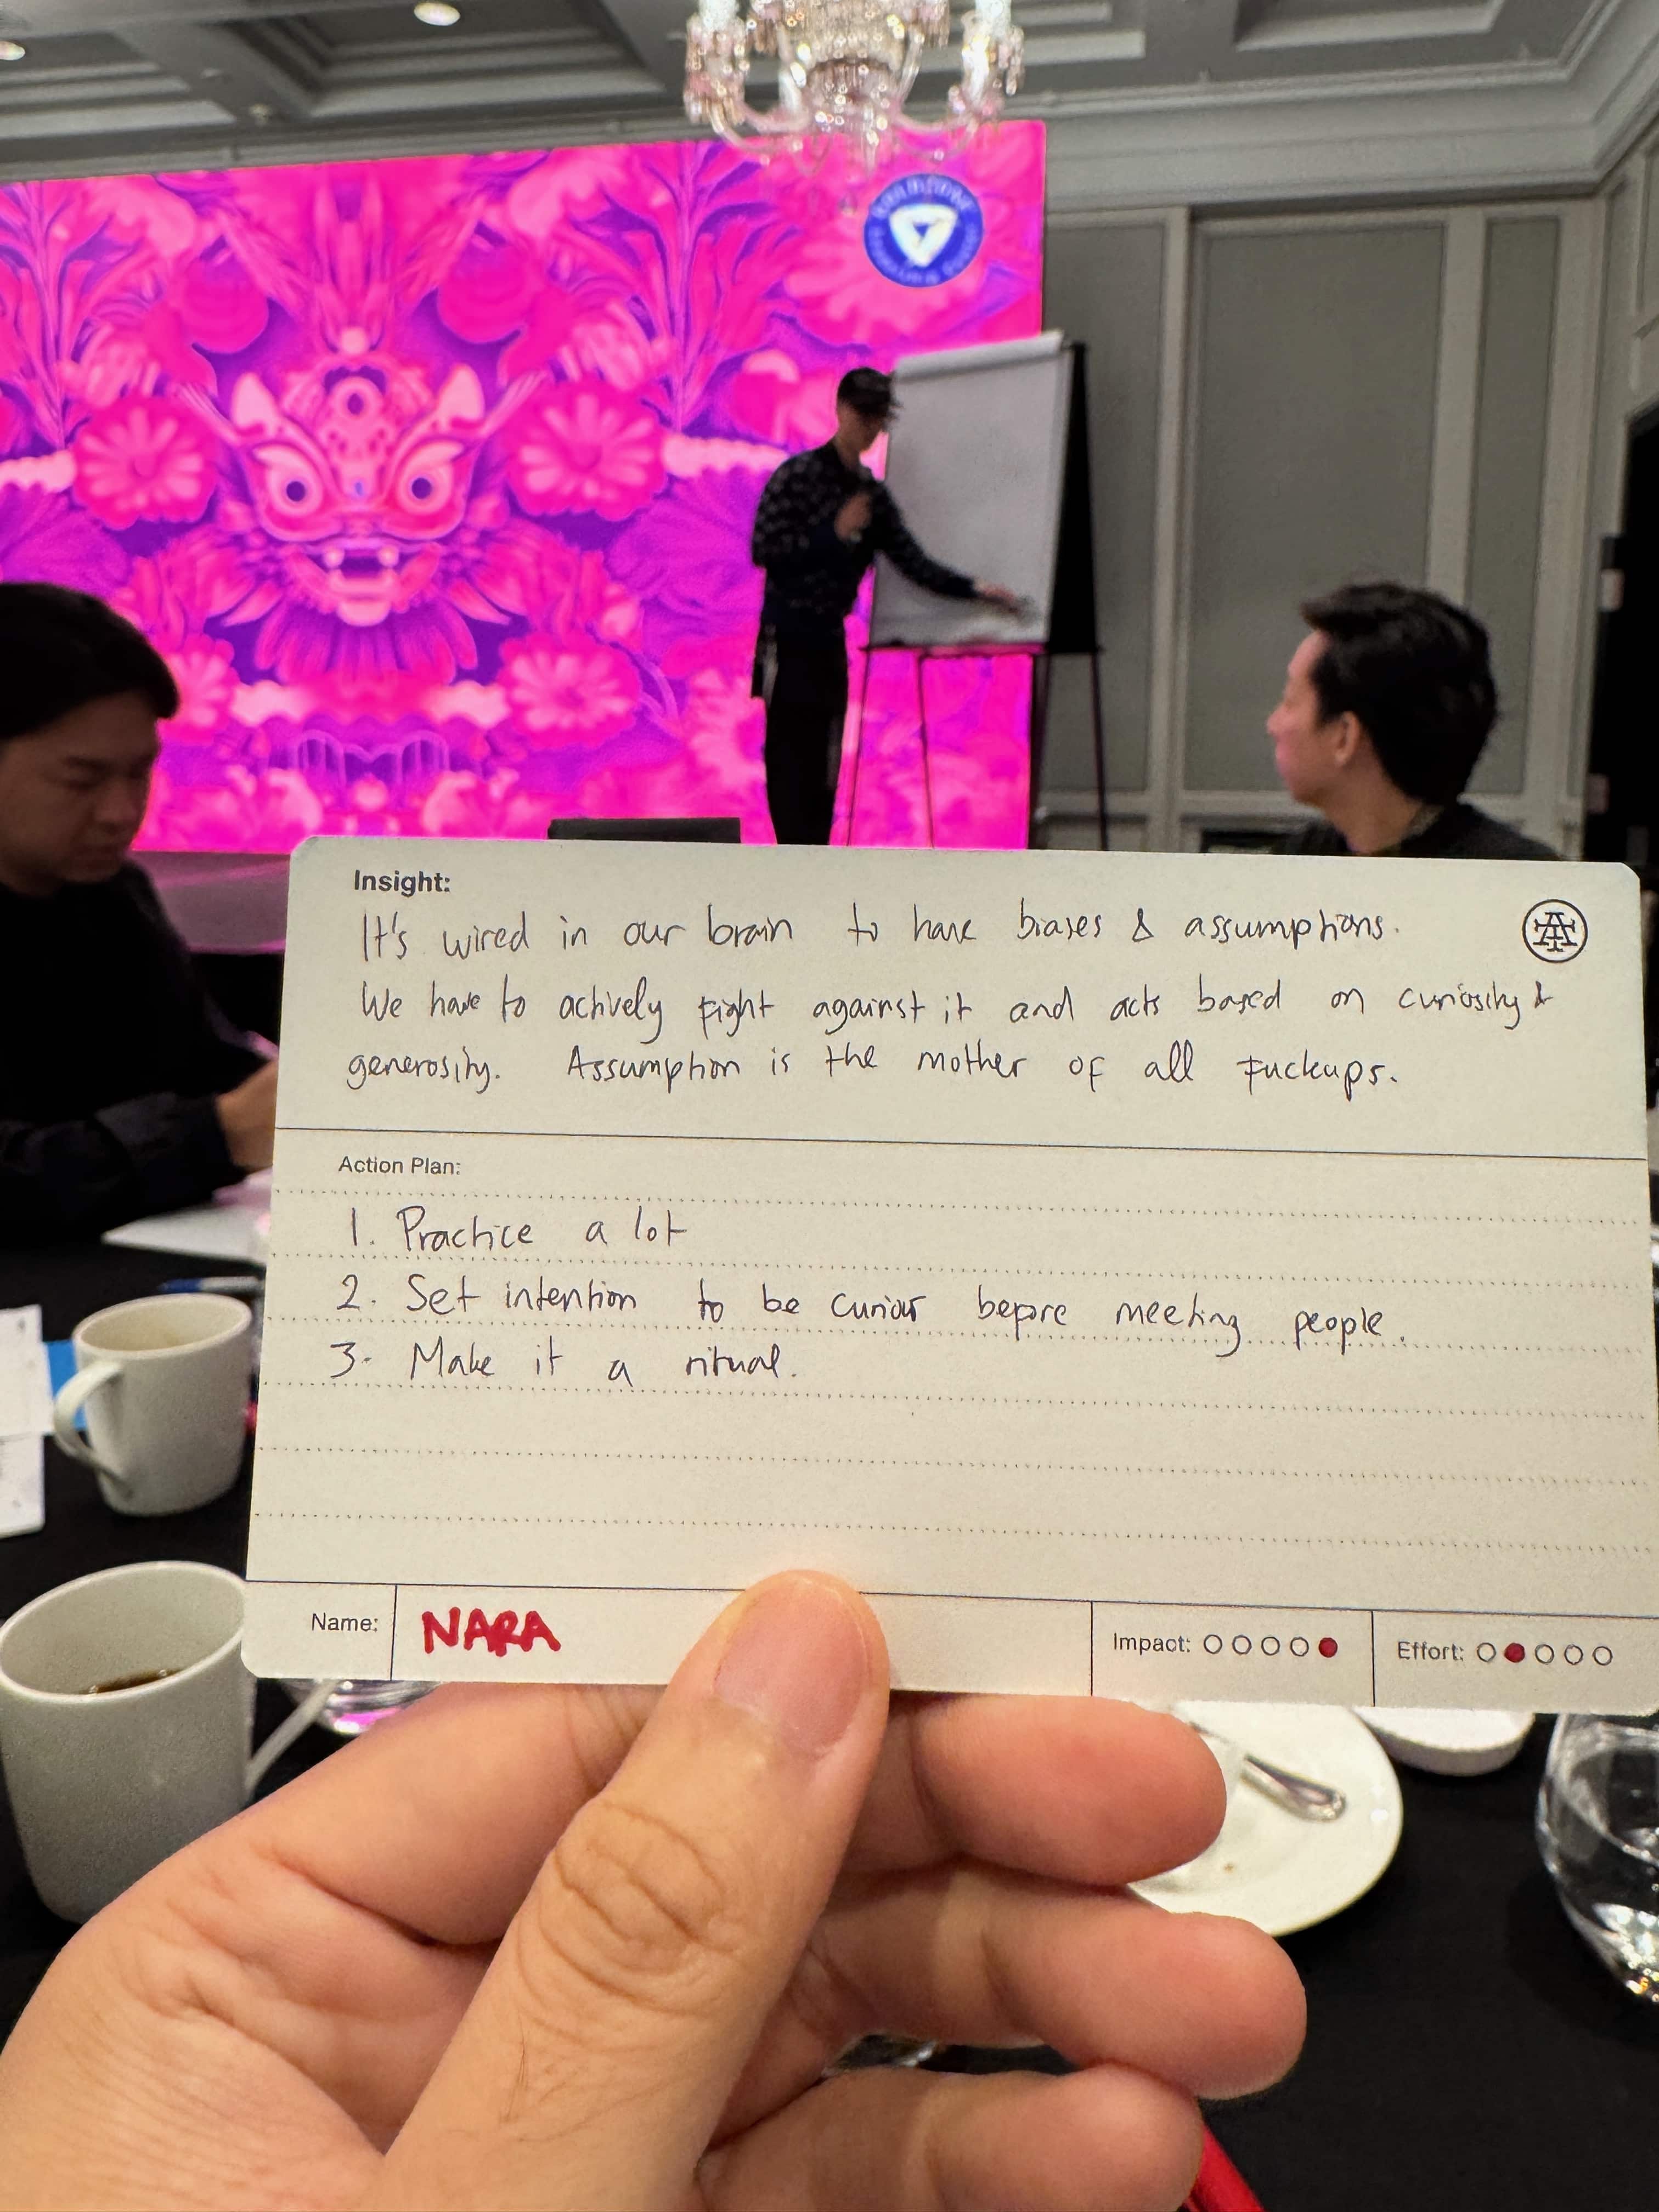 Insight:
It's wired in our brain to have biases & assumptions.
We have to actively fight against it and acts based on curiosity &
generosity. Assumption is the mother of all Fuckups.
Action Plan:
1. Practice a lot
2. Set intention to be curious before meeting people.
3. Make it a ritual.
Name: NARA Impact: Effort: